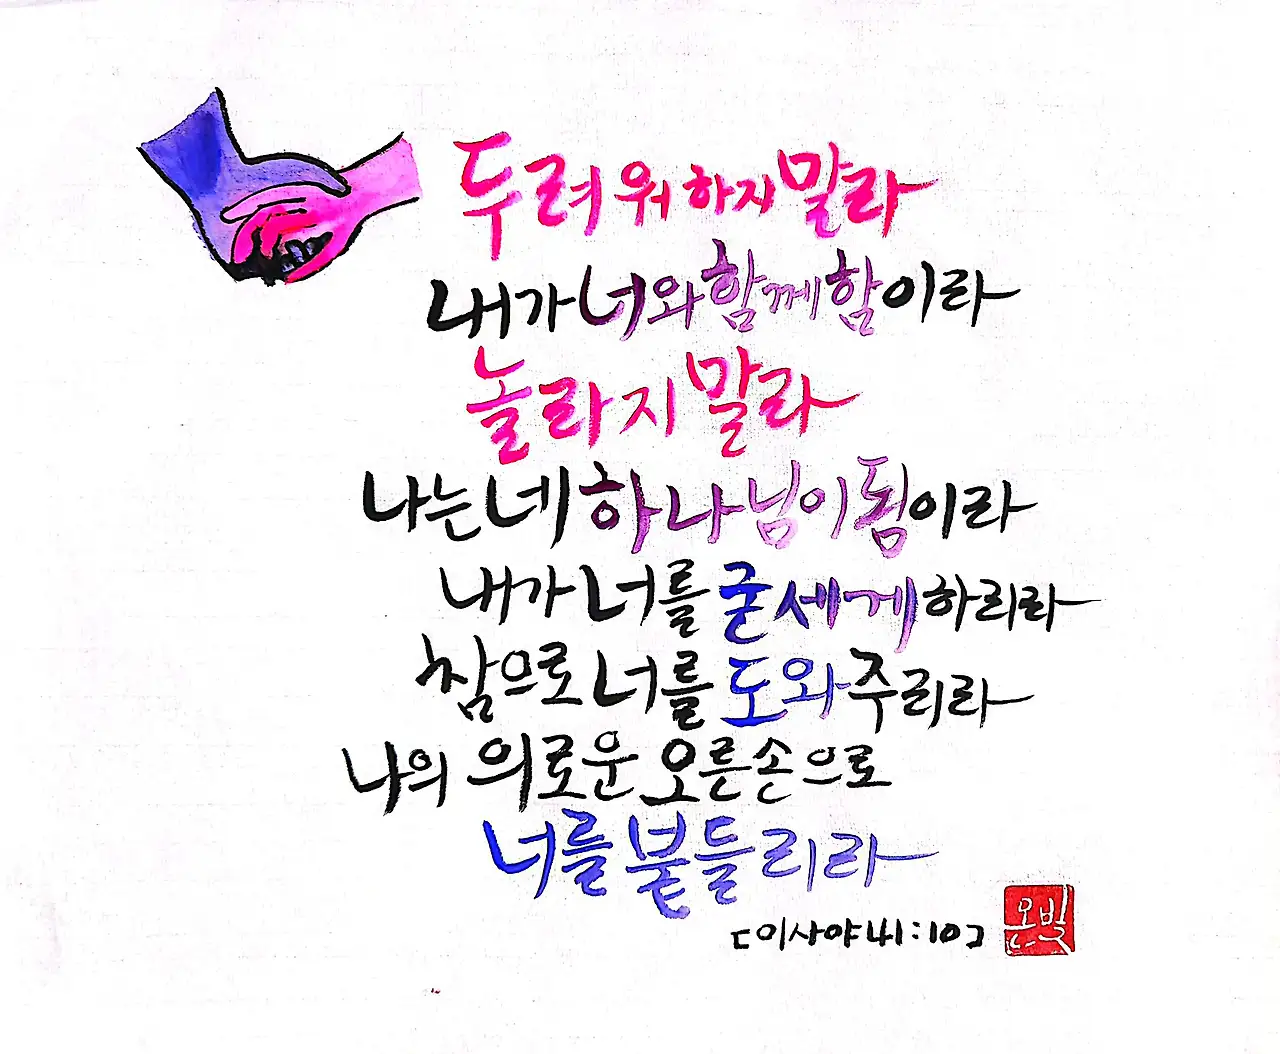 두려워하지말라
내가너와함께함이라
놀라지말라
나는네하나님이됨이라
내가너를굳세게하리라
참으로너를도와주리라
나의 의로운 오른손으로
너를붙들리라
[이사야41:10]
온빛